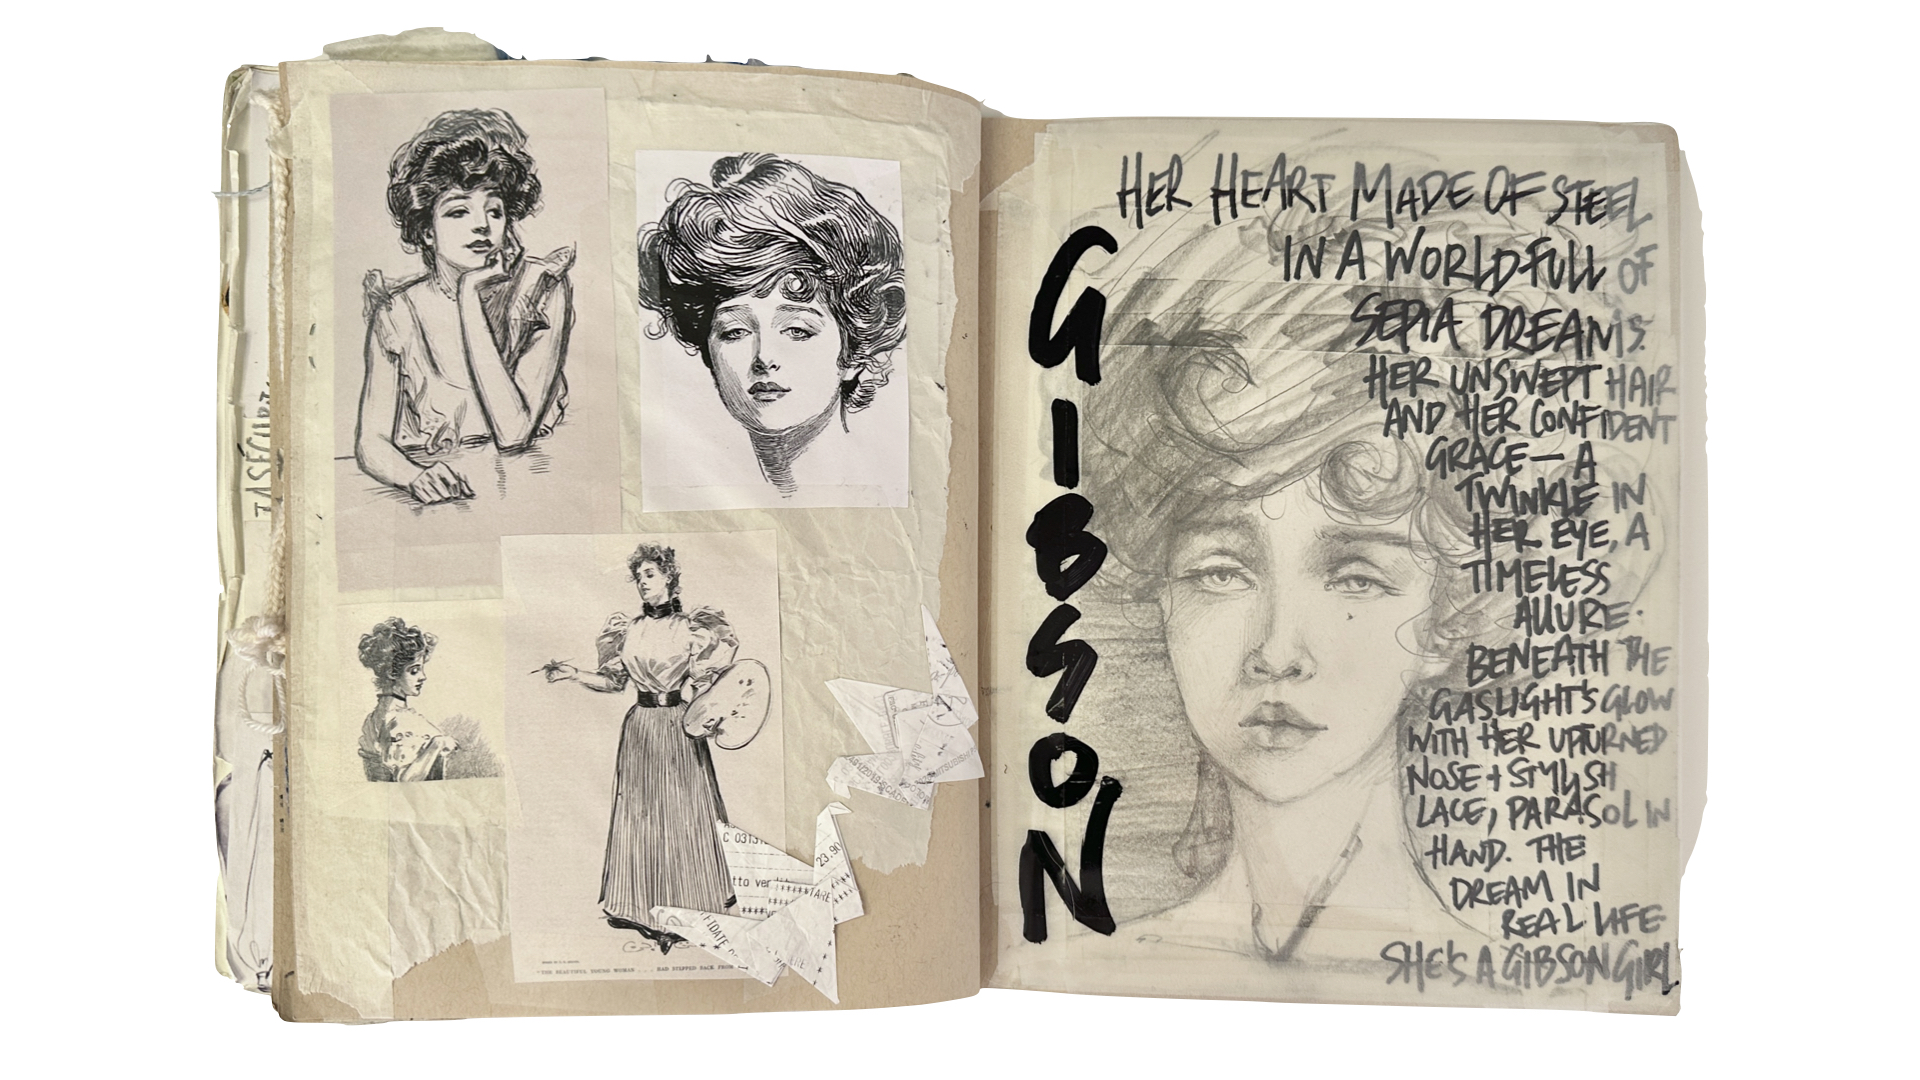 TASÉCURT
"THE BEAUTIFUL YOUNG WOMAN . . . HAD STEPPED BACK FROM
C 0313
23.90
tto ver
*****TARE
GIBSON
HER HEART MADE OF STEEL
IN A WORLD FULL OF
SEPIA DREAMS.
HER UNSWEPT HAIR
AND HER CONFIDENT
GRACE — A
TWINKLE IN
HER EYE, A
TIMELESS
ALLURE.
BENEATH THE
GASLIGHT'S GLOW
WITH HER UPTURNED
NOSE + STYLISH
LACE, PARASOL IN
HAND. THE
DREAM IN
REAL LIFE
SHE'S A GIBSON GIRL